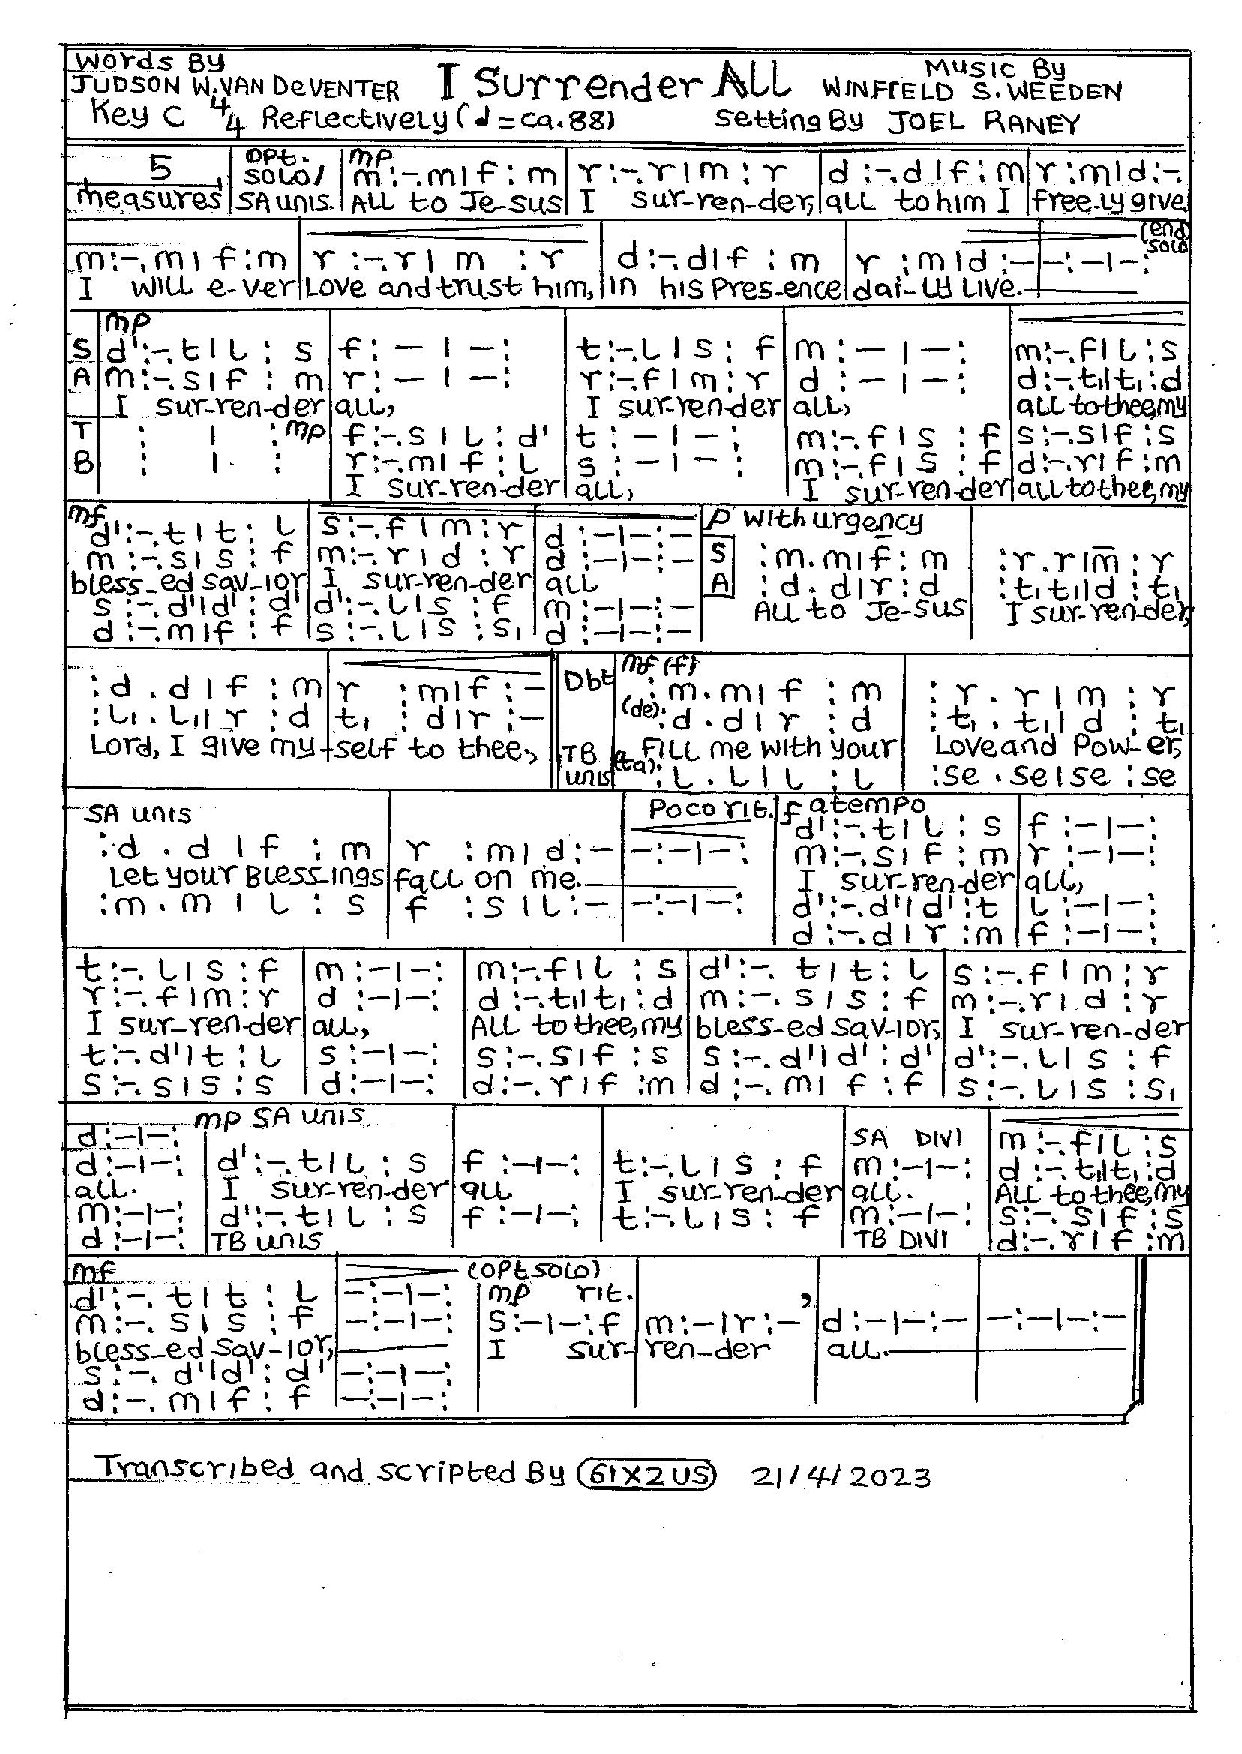 Words By
JUDSON W. VAN DeVENTER I Surrender ALL Music By WINFIELD S. WEEDEN
Key C 4/4 Reflectively (♩=ca.88) setting By JOEL RANEY
5 opt. solo/ mp m:-.m|f:m r:-.r|m:r d:-.d|f:m r:m|d:-.
measures SA unis. ALL to Je-sus I sur-ren-der, all to him I free-ly give.
(end solo
m:-.m|f:m r:-.r|m:r d:-.d|f:m r:m|d:- -:-|-:
I will e-ver Love and trust him, in his Pres-ence dai-Ly Live.
mp
S d':-.t|L:s f:-|-: t:-.L|s:f m:-|-: m:-.f|L:s
A m:-.s|f:m r:-|-: r:-.f|m:r d:-|-: d:-.t₁|t₁:d
I sur-ren-der all, I sur-ren-der all, all to thee, my
T : | :mp f:-.s|L:d' t:-|-: m:-.f|s:f s:-.s|f:s
B : | : r:-.m|f:L s:-|-: m:-.f|s:f d:-.r|f:m
I sur-ren-der all, I sur-ren-der all to thee, my
mf P With urgency
d':-.t|t:L s:-.f|m:r d:-|-:- S :m.m|f:m :r.r|m:r
m:-.s|s:f m:-.r|d:r d:-|-:- A :d.d|r:d :t₁.t₁|d:t₁
bless-ed Sav-ior I sur-ren-der all ALL to Je-sus I sur-ren-der,
s:-.d'|d':d' d':-.L|s:f m:-|-:-
d:-.m|f:f s:-.L|s:s₁ d:-|-:-
Dbt mf(f)
:d.d|f:m r:m|f:- :m.m|f:m :r.r|m:r
:L₁.L₁|r:d t₁:d|r:- (de):d.d|r:d :t₁.t₁|d:t₁
Lord, I give my-self to thee, TB unis FILL me with your Love and Pow-er,
(ta):L.L|L:L :se.se|se:se
SA unis Poco rit. f atempo
d':-.t|L:s f:-|-:
:d.d|f:m r:m|d:- -:-|-: m:-.s|f:m r:-|-:
Let your BLess-ings fall on me. I sur-ren-der all,
:m.m|L:s f:s|L:- -:-|-: d':-.d'|d':t L:-|-:
d:-.d|r:m f:-|-:
t:-.L|s:f m:-|-: m:-.f|L:s d':-.t|t:L s:-.f|m:r
r:-.f|m:r d:-|-: d:-.t₁|t₁:d m:-.s|s:f m:-.r|d:r
I sur-ren-der all, ALL to thee, my bless-ed Sav-ior, I sur-ren-der
t:-.d'|t:L s:-|-: s:-.s|f:s s:-.d'|d':d' d':-.L|s:f
s:-.s|s:s d:-|-: d:-.r|f:m d:-.m|f:f s:-.L|s:s₁
mp SA unis
d:-|-: SA DIVI m:-.f|L:s
d:-|-: d':-.t|L:s f:-|-: t:-.L|s:f m:-|-: d:-.t₁|t₁:d
all. I sur-ren-der all I sur-ren-der all. ALL to thee, my
m:-|-: d':-.t|L:s f:-|-: t:-.L|s:f m:-|-: s:-.s|f:s
d:-|-: TB unis TB DIVI d:-.r|f:m
mf (opt solo)
d':-.t|t:L -:-|-: mp rit.
m:-.s|s:f -:-|-: s:-|-:f m:-|r:-, d:-|-:- -:-|-:-
bless-ed Sav-ior, I sur-ren-der all.
s:-.d'|d':d' -:-|-:
d:-.m|f:f -:-|-:
Transcribed and scripted By 61X2US 21/4/2023